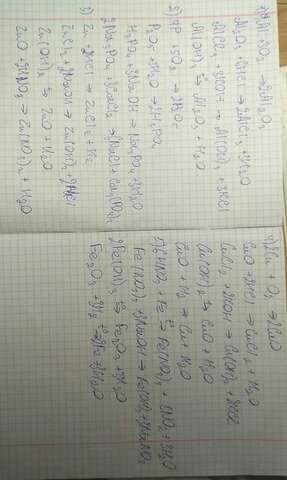 4Al + 3O₂ → 2Al₂O₃
Al₂O₃ + 6HCl → 2AlCl₃ + 3H₂O
AlCl₃ + 3KOH → Al(OH)₃ + 3KCl
Al(OH)₃ ⇄ Al₂O₃ + H₂O
2) 4P + 5O₂ → 2P₂O₅
P₂O₅ + 3H₂O → H₃PO₄
H₃PO₄ + 3NaOH → Na₃PO₄ + 3H₂O
2Na₃PO₄ + 3CaCl₂ → 6NaCl + Ca₃(PO₄)₂
3) Zn + 2HCl → ZnCl₂ + H₂
ZnCl₂ + 2NaOH → Zn(OH)₂ + 2NaCl
Zn(OH)₂ ⇄ ZnO + H₂O
ZnO + 2HNO₃ → Zn(NO₃)₂ + H₂O
4) 2Cu + O₂ → 2CuO
CuO + 2HCl → CuCl₂ + H₂O
CuCl₂ + 2KOH → Cu(OH)₂ + 2KCl
Cu(OH)₂ ⇄ CuO + H₂O
CuO + H₂ → Cu + H₂O
5) 6HNO₃ + Fe → Fe(NO₃)₃ + 3NO₂ + 3H₂O
Fe(NO₃)₃ + 3NaOH → Fe(OH)₃ + 3NaNO₃
2Fe(OH)₃ → Fe₂O₃ + 3H₂O
Fe₂O₃ + 3H₂ → 2Fe + 3H₂O